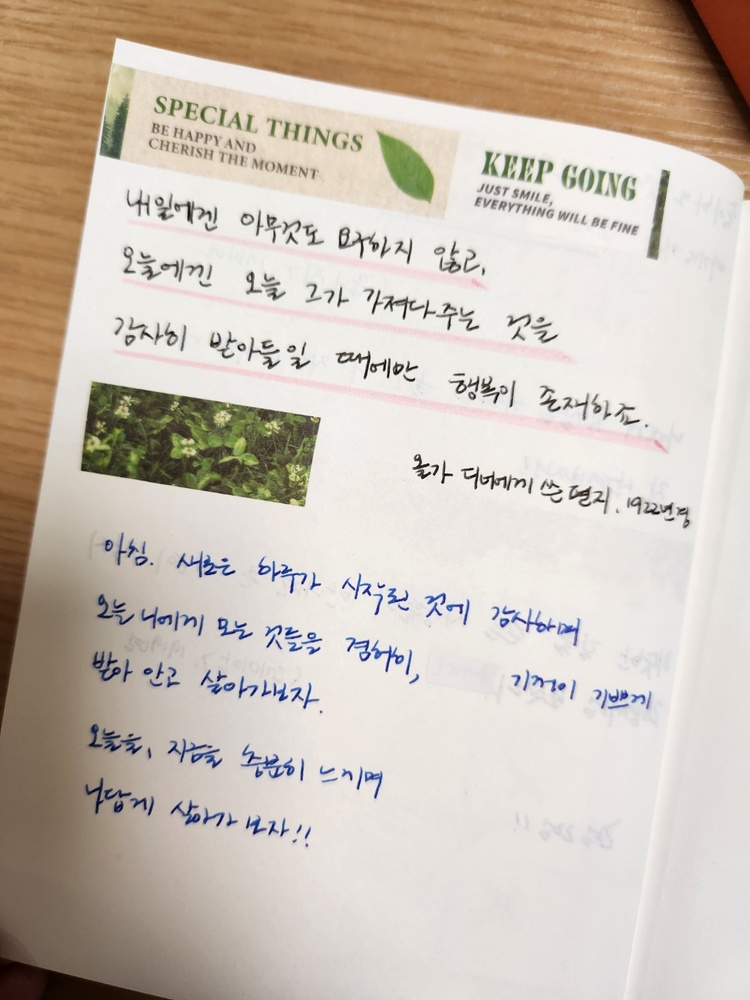 SPECIAL THINGS
BE HAPPY AND
CHERISH THE MOMENT
KEEP GOING
JUST SMILE,
EVERYTHING WILL BE FINE
내일에겐 아무것도 요구하지 않고,
오늘에겐 오늘 그가 가져다주는 것을
감사히 받아들일 때에만 행복이 존재하죠.
올가 디너에게 쓴 편지. 1922년경
아침. 새로운 하루가 시작된 것에 감사하며
오늘 나에게 오는 것들을 겸허히, 기꺼이 기쁘게
받아 안고 살아가보자.
오늘을, 지금을 충분히 느끼며
나답게 살아가보자!!